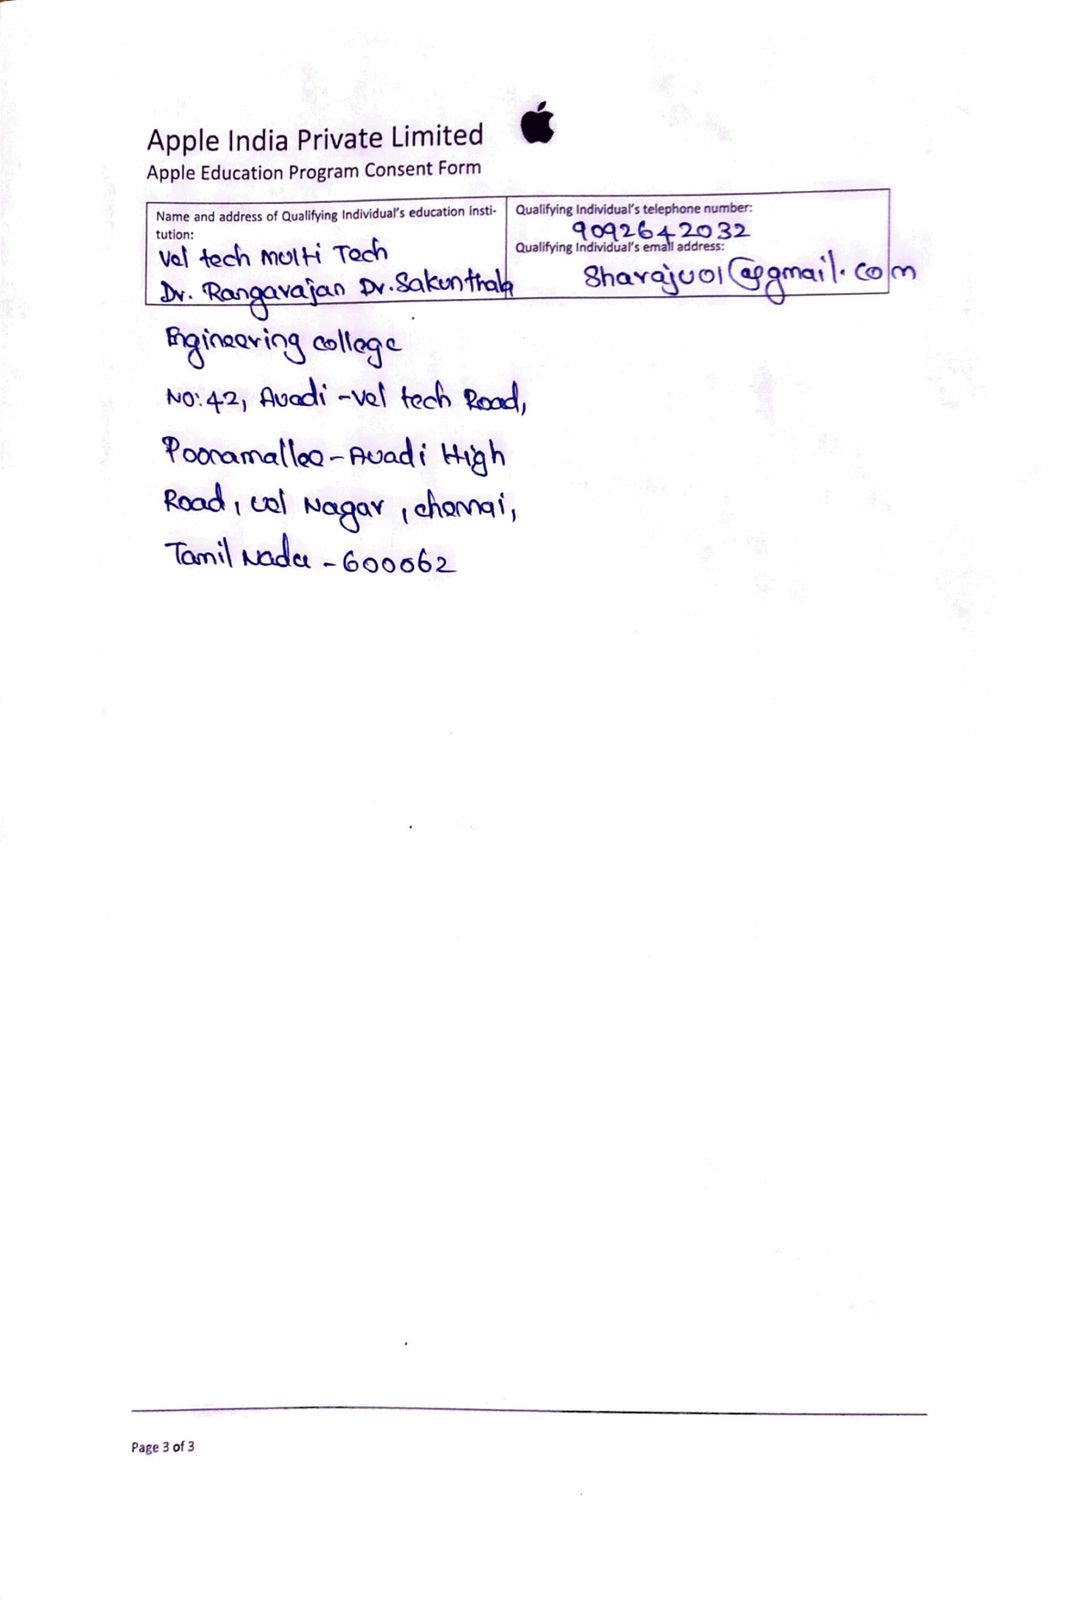 Apple India Private Limited
Apple Education Program Consent Form
Name and address of Qualifying Individual's education insti-
tution:
Vel tech Multi Tech
Dr. Rangarajan Dr. Sakunthala
Engineering college
No: 42, Avadi - Vel tech Road,
Poonamallee - Avadi High
Road, vel Nagar, chennai,
Tamil Nadu - 600062
Qualifying Individual's telephone number:
9092642032
Qualifying Individual's email address:
Sharaju01@gmail.com
Page 3 of 3